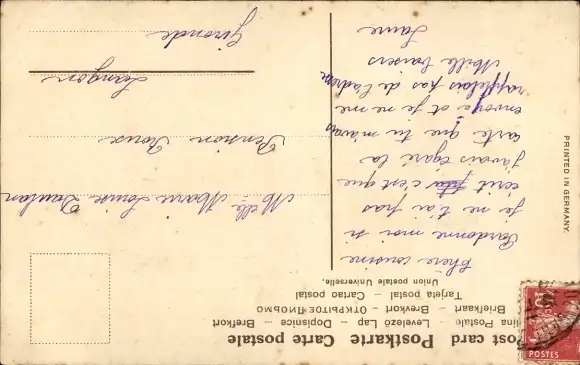 Post card Postkarte Carte postale
Levelező Lap — Dopisnice — Brefkort
Briefkaart — Brevkort — ОТКРЫТОЕ ПИСЬМО
Tarjeta postal — Cartao postal
Union postale Universelle.
Chère cousine
Pardonne moi si
je ne t'ai pas
écrit c'est que
j'avais égaré la
carte que tu m'avais
envoyé et je ne me
rappelais pas de l'adresse
Mille baisers
Laure
Melle Marie Louise Daulan
Pension Roux
Langon
Gironde
PRINTED IN GERMANY.
10
POSTES